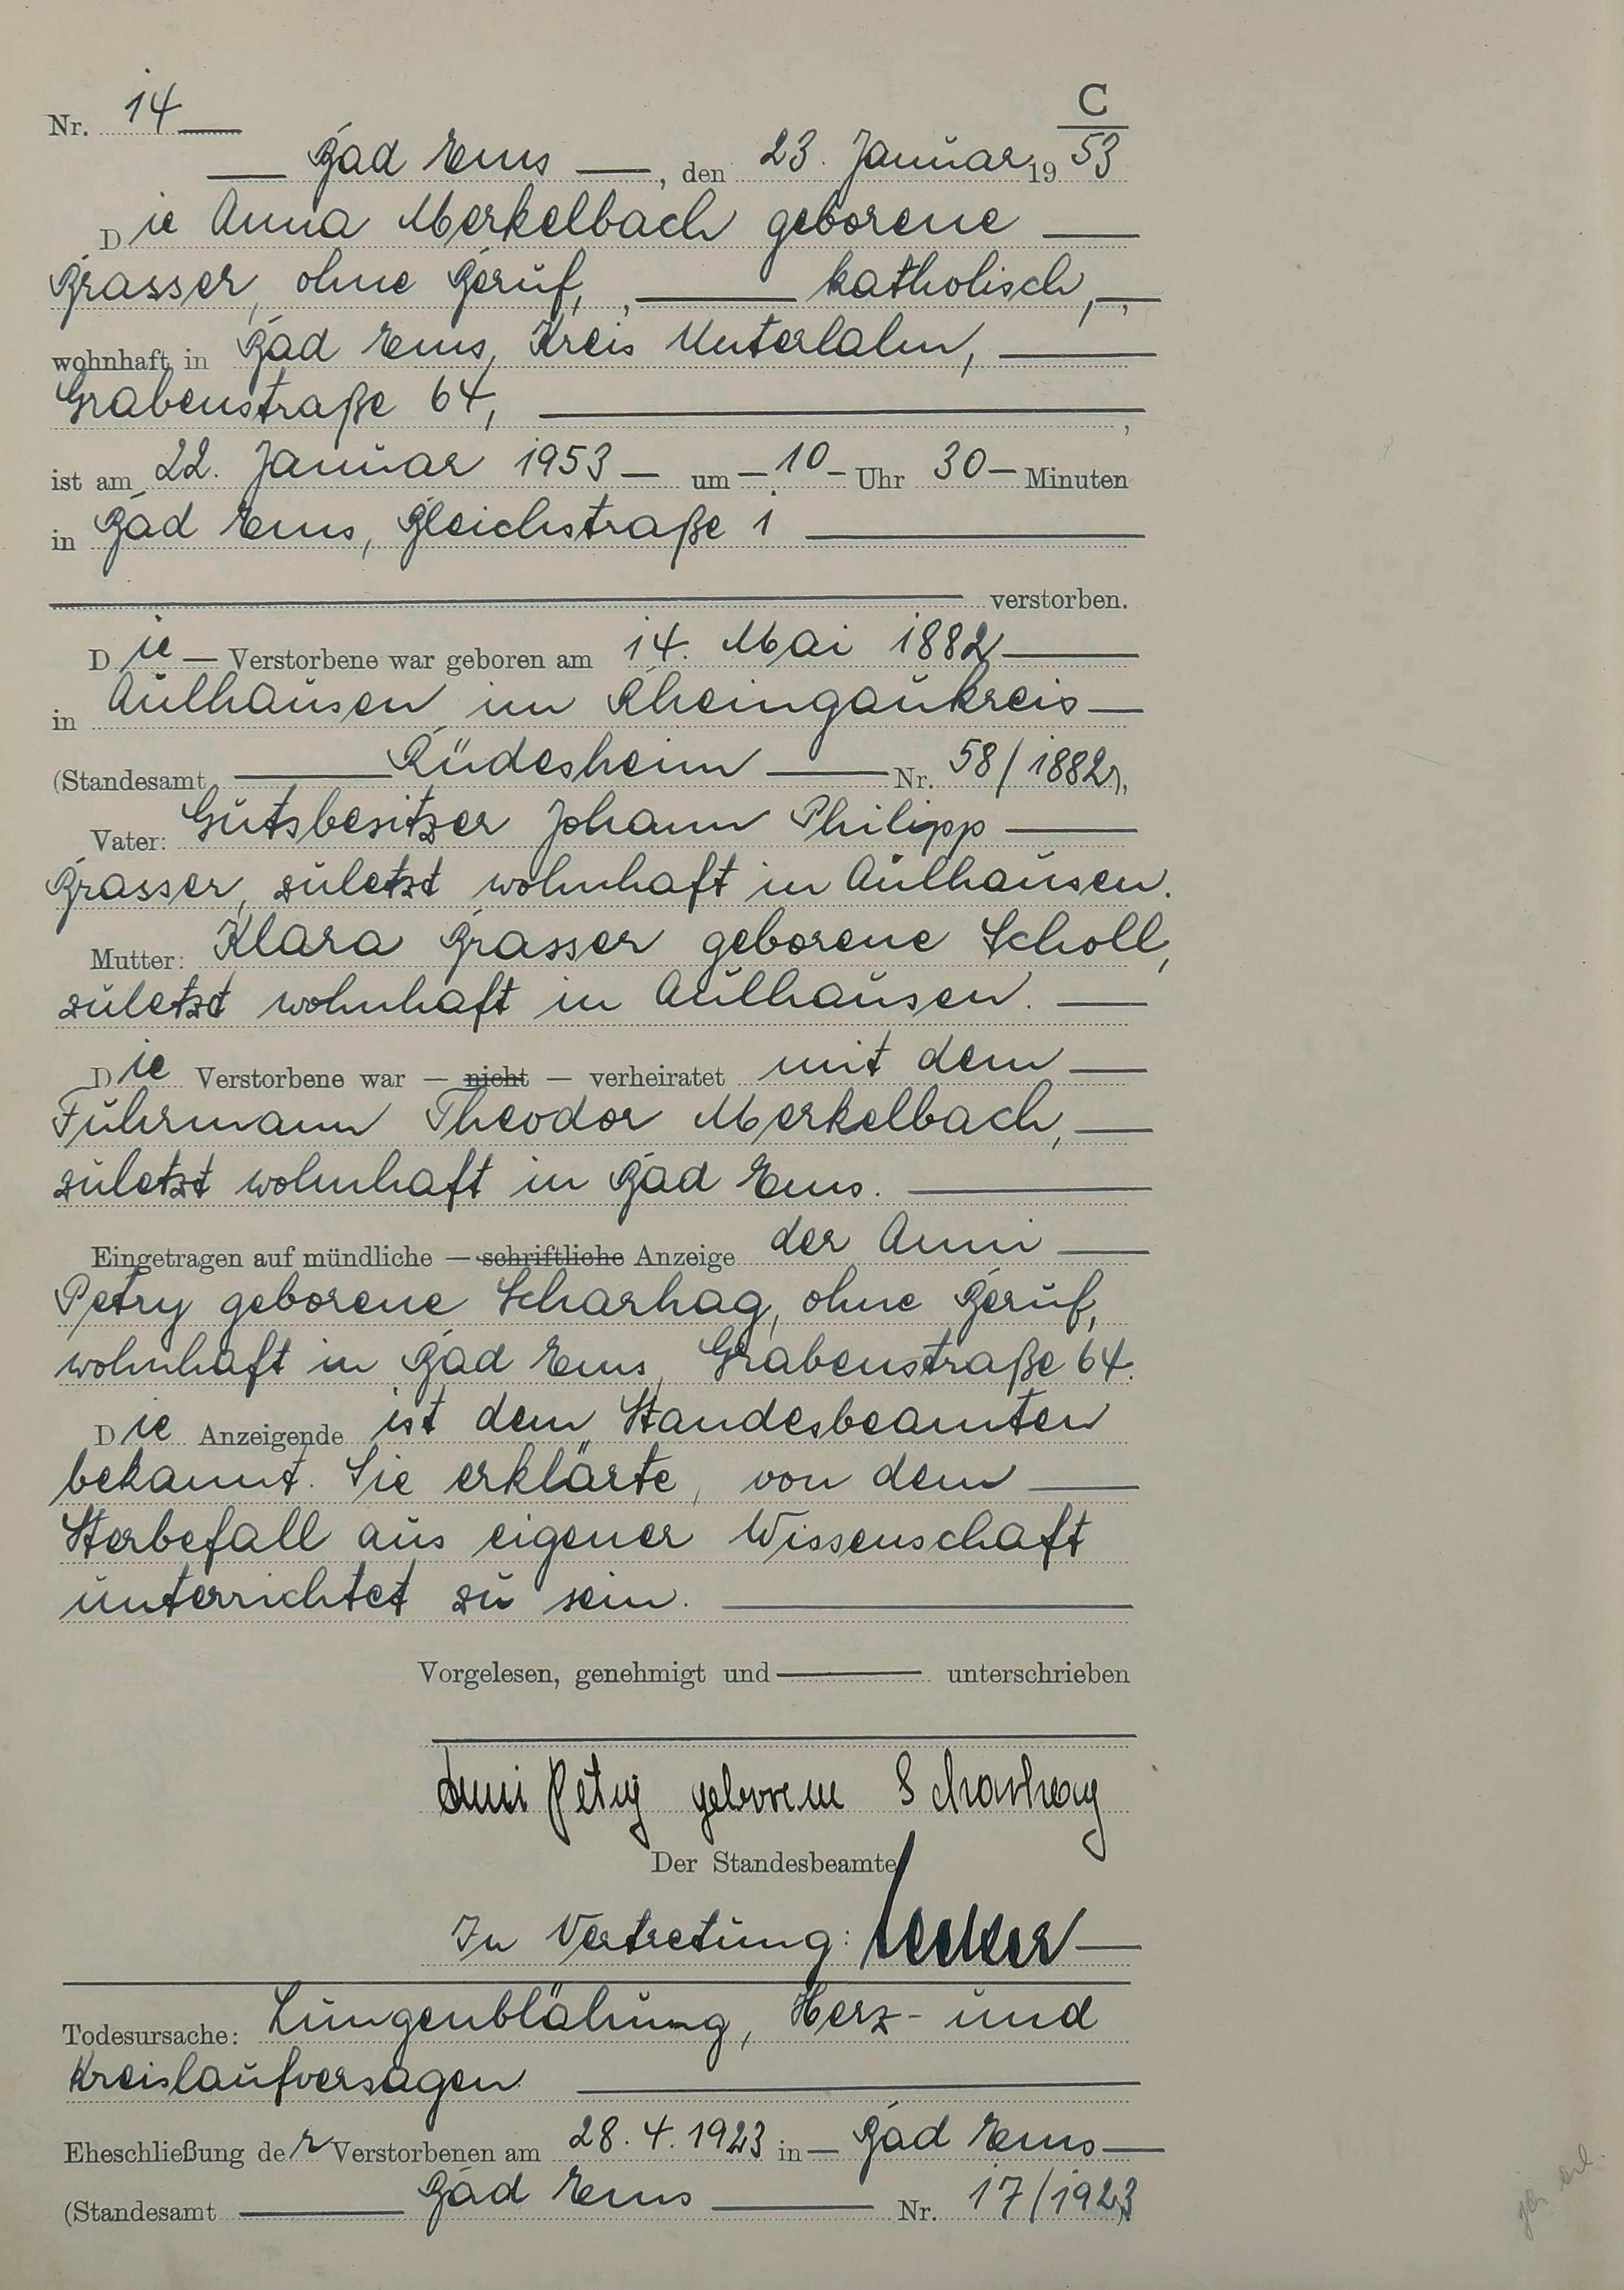 C
Nr. 14
Bad Ems, den 23. Januar 1953
Die Anna Merkelbach geborene
Brasser, ohne Beruf, katholisch,
wohnhaft in Bad Ems, Kreis Unterlahn,
Grabenstraße 64,
ist am 22. Januar 1953 um 10 Uhr 30 Minuten
in Bad Ems, Bleichstraße 1
verstorben.
Die Verstorbene war geboren am 14. Mai 1882
in Aulhausen im Rheingaukreis
(Standesamt Rüdesheim Nr. 58/1882),
Vater: Gutsbesitzer Johann Philipp
Brasser, zuletzt wohnhaft in Aulhausen.
Mutter: Klara Brasser geborene Scholl,
zuletzt wohnhaft in Aulhausen.
Die Verstorbene war — nicht — verheiratet mit dem
Fuhrmann Theodor Merkelbach,
zuletzt wohnhaft in Bad Ems.
Eingetragen auf mündliche — schriftliche Anzeige der Anni
Petry geborene Scharhag, ohne Beruf,
wohnhaft in Bad Ems, Grabenstraße 64.
Die Anzeigende ist dem Standesbeamten
bekannt. Sie erklärte, von dem
Sterbefall aus eigener Wissenschaft
unterrichtet zu sein.
Vorgelesen, genehmigt und unterschrieben
Anni Petry geborene Scharhag
Der Standesbeamte
In Vertretung:
Todesursache: Lungenblähung, Herz- und
Kreislaufversagen
Eheschließung der Verstorbenen am 28.4.1923 in Bad Ems
(Standesamt Bad Ems Nr. 17/1923)